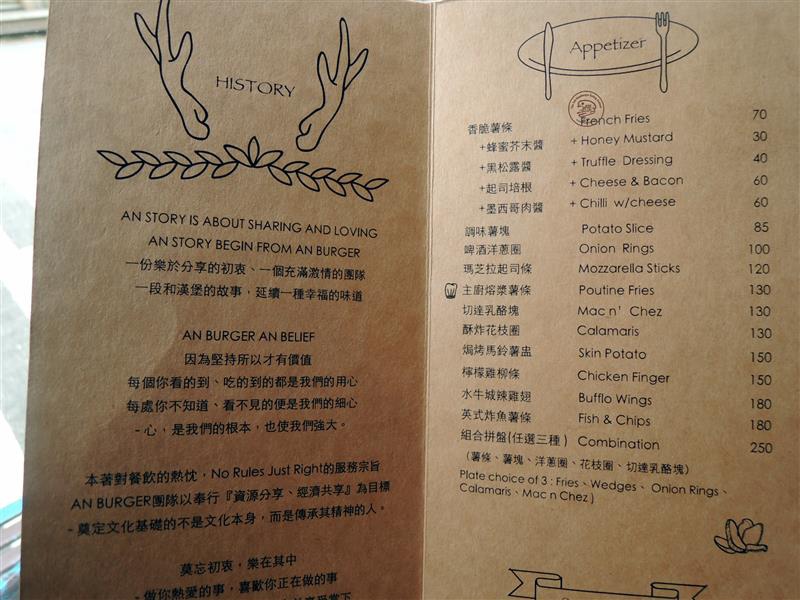 HISTORY
AN STORY IS ABOUT SHARING AND LOVING
AN STORY BEGIN FROM AN BURGER
一份樂於分享的初衷、一個充滿激情的團隊
一段和漢堡的故事，延續一種幸福的味道
AN BURGER AN BELIEF
因為堅持所以才有價值
每個你看的到、吃的到的都是我們的用心
每處你不知道、看不見的便是我們的細心
- 心，是我們的根本，也使我們強大。
本著對餐飲的熱忱，No Rules Just Right的服務宗旨
AN BURGER團隊以奉行『資源分享、經濟共享』為目標
- 奠定文化基礎的不是文化本身，而是傳承其精神的人。
莫忘初衷，樂在其中
- 做你熱愛的事，喜歡你正在做的事
Appetizer
香脆薯條 French Fries 70
+蜂蜜芥末醬 + Honey Mustard 30
+黑松露醬 + Truffle Dressing 40
+起司培根 + Cheese & Bacon 60
+墨西哥肉醬 + Chilli w/cheese 60
調味薯塊 Potato Slice 85
啤酒洋蔥圈 Onion Rings 100
瑪芝拉起司條 Mozzarella Sticks 120
主廚熔漿薯條 Poutine Fries 130
切達乳酪塊 Mac n' Chez 130
酥炸花枝圈 Calamaris 130
焗烤馬鈴薯盅 Skin Potato 150
檸檬雞柳條 Chicken Finger 150
水牛城辣雞翅 Bufflo Wings 180
英式炸魚薯條 Fish & Chips 180
組合拼盤(任選三種) Combination 250
(薯條、薯塊、洋蔥圈、花枝圈、切達乳酪塊)
Plate choice of 3 : Fries、Wedges、Onion Rings、
Calamaris、Mac n Chez )